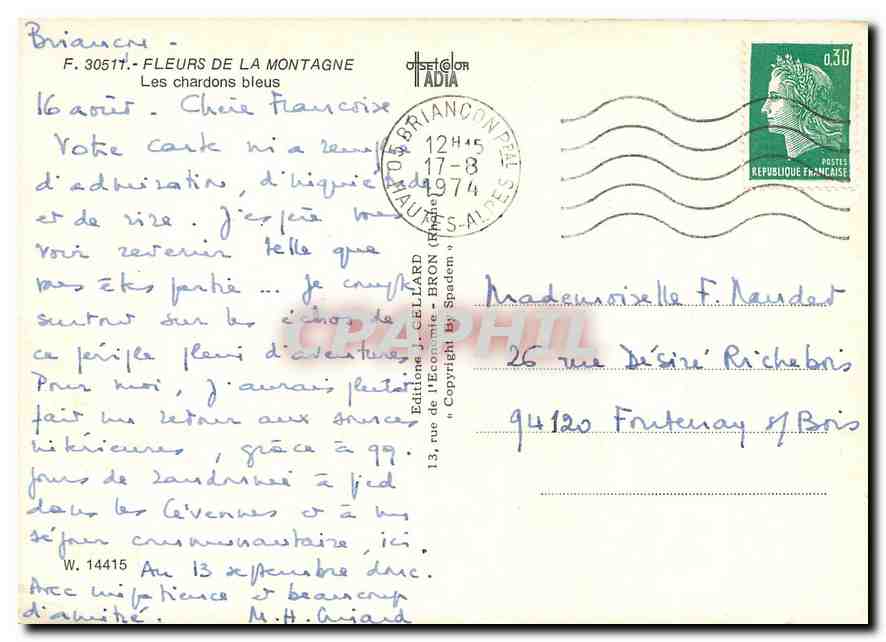 Briançon -
F. 30511.- FLEURS DE LA MONTAGNE
Les chardons bleus
OFFSET COLOR
IADIA
16 août. Chère Françoise
Votre carte m'a remplie
d'admiration, d'inquiétude
et de rire. J'espère vous
voir revenir telle que
vous êtes partie... Je compte
surtout sur les échos de
ce périple plein d'aventures.
Pour moi, j'aurais plutôt
fait un retour aux sources
intérieures, grâce à qq.
jours de randonnée à pied
dans les Cévennes et à un
séjour communautaire, ici.
W. 14415
Au 13 septembre donc.
Avec impatience et beaucoup
d'amitié. M.H.
05 BRIANCON Pal
12H15
17-8
1974
HAUTES-ALPES
0,30
POSTES
REPUBLIQUE FRANCAISE
Editions J. CELLARD
13, rue de l'Economie - BRON (Rhône)
" Copyright By Spadem "
CPAPHIL
Mademoiselle F. Naudet
26 rue Désiré Richebois
94120 Fontenay s/Bois